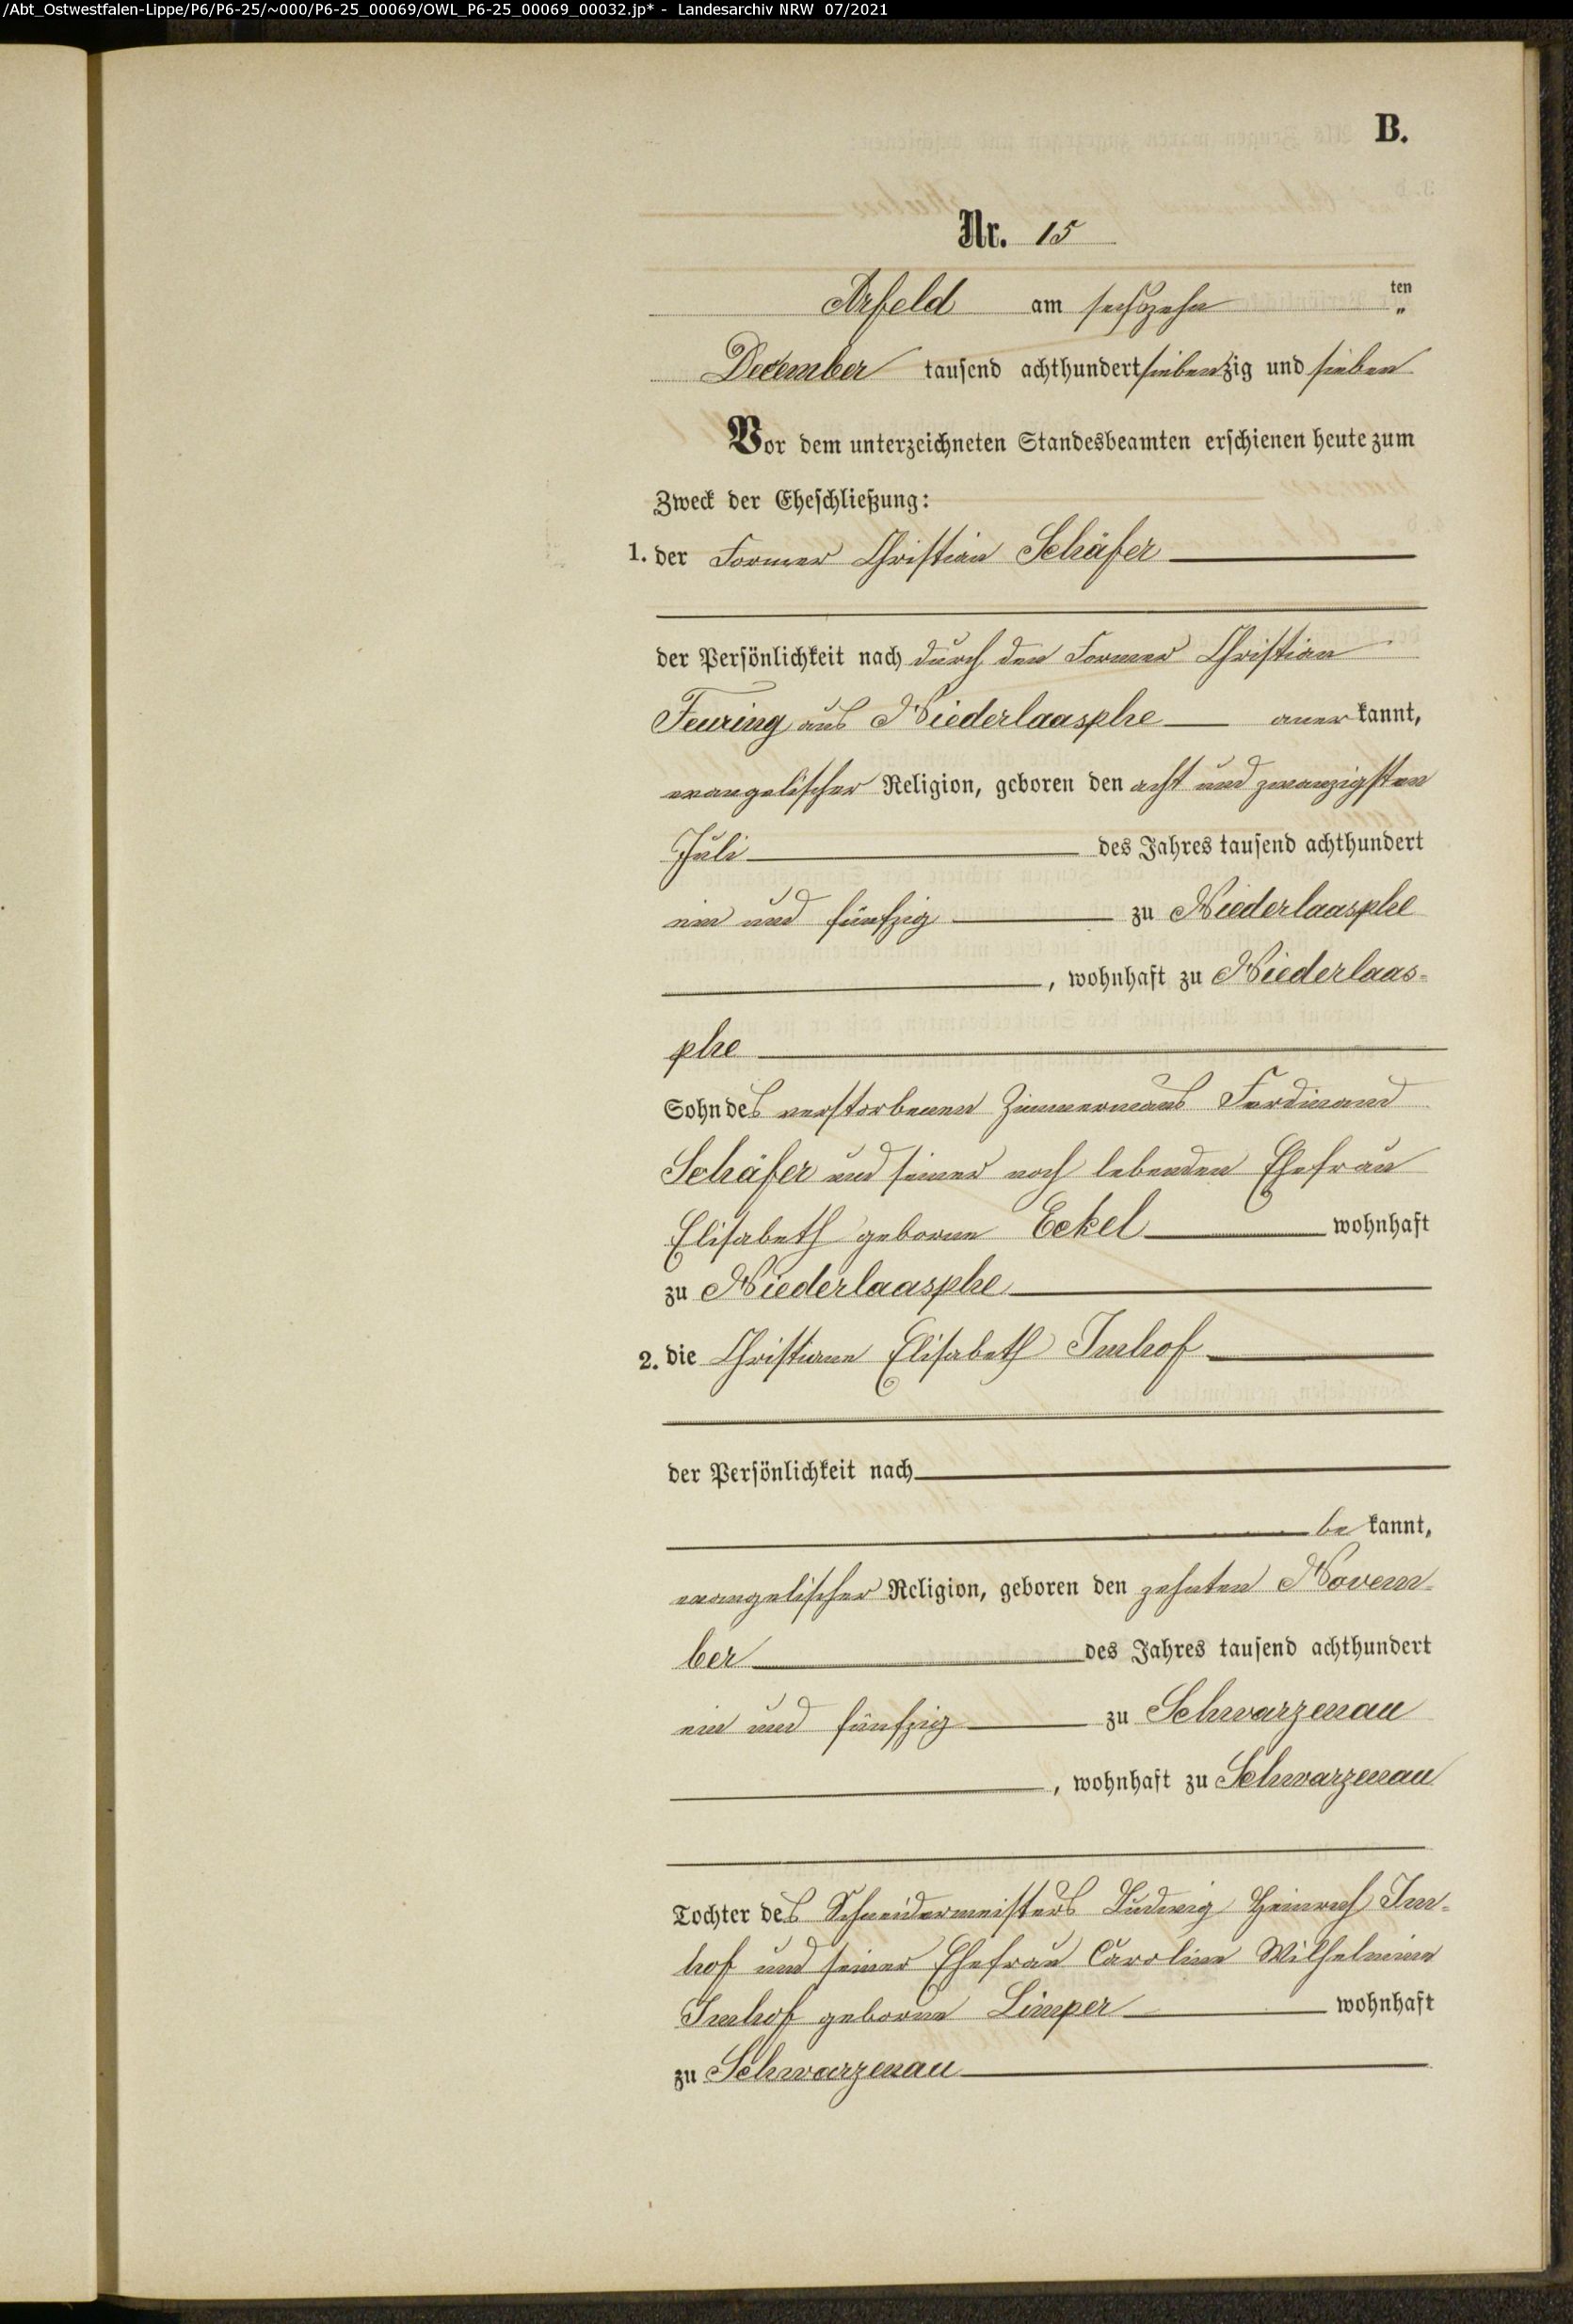 /Abt_Ostwestfalen-Lippe/P6/P6-25/~000/P6-25_00069/OWL_P6-25_00069_00032.jp* - Landesarchiv NRW 07/2021
B.
Nr. 15
Arfeld am sechszehn ten
December tausend achthundert siebenzig und sieben
Vor dem unterzeichneten Standesbeamten erschienen heute zum
Zweck der Eheschließung:
1. der Former Christian Schäfer
der Persönlichkeit nach durch den Former Christian
Feuring aus Niederlaasphe anerkannt,
evangelischer Religion, geboren den acht und zwanzigsten
Juli des Jahres tausend achthundert
ein und fünfzig zu Niederlaasphe
, wohnhaft zu Niederlaas-
phe
Sohn des verstorbenen Zimmermans Ferdinand
Schäfer und seiner noch lebenden Ehefrau
Elisabeth geborne Eckel wohnhaft
zu Niederlaasphe
2. die Christiane Elisabeth Imhof
der Persönlichkeit nach
bekannt,
evangelischer Religion, geboren den zehnten Novem-
ber des Jahres tausend achthundert
ein und fünfzig zu Schwarzenau
, wohnhaft zu Schwarzenau
Tochter des Schneidermeisters Ludwig Heinrich Im-
hof und seiner Ehefrau Caroline Wilhelmine
Imhof geborne Limper wohnhaft
zu Schwarzenau